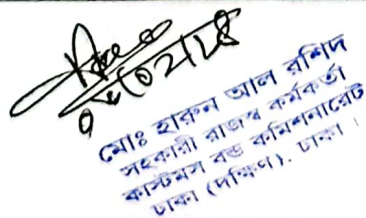 মোঃ হারুন আল রশিদ
সহকারী রাজস্ব কর্মকর্তা
কাস্টমস বন্ড কমিশনারেট
ঢাকা (দক্ষিণ), ঢাকা।